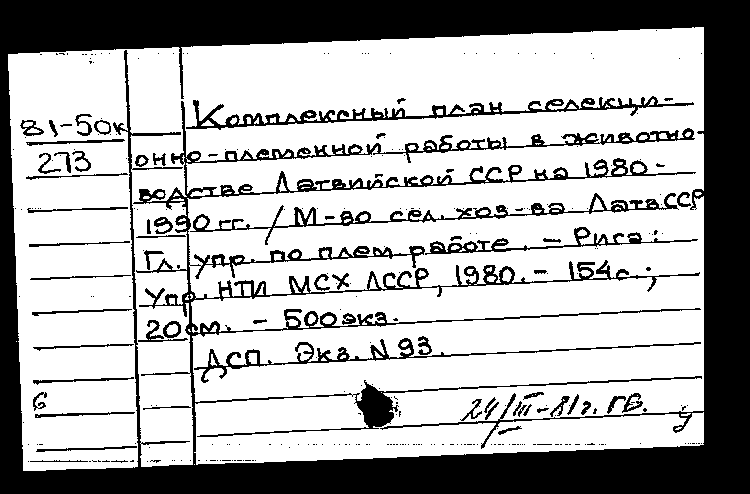 81-50к
273
Комплексный план селекци-
онно-племенной работы в животно-
водстве Латвийской ССР на 1980-
1990 гг. / М-во сел. хоз-ва ЛатвССР
Гл. упр. по плем работе. - Рига:
Упр. НТИ МСХ ЛССР, 1980. - 154с.;
20см. - 500экз.
ДСП. Экз. N 93.
6
24/III-81г. ГВ.
у